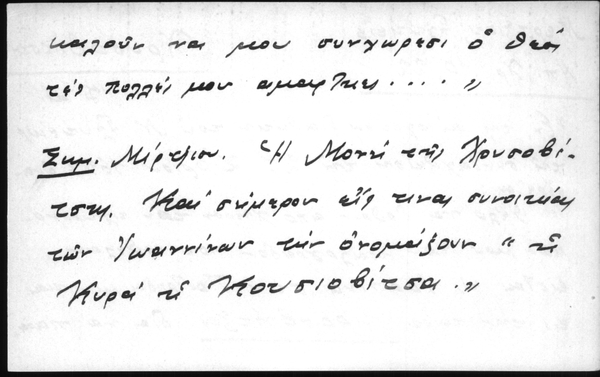 καλοῦν να μου συνχωρεσι ὁ θεός
τές πολλές μου αμαρτιες....»
Σημ. Μέρτζιου. Ἡ Μονή τῆς Χρυσοβί-
τσης. Καί σήμερον εἴς τινας συνοικίας
τῶν Ἰωαννίνων τήν ὀνομάζουν "ἡ
Κυρά ἡ Κουσιοβίτσα."